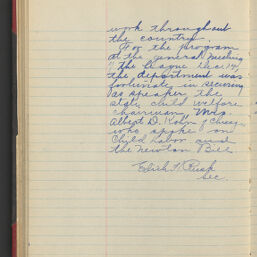 work throughout
the country.
For the program
at the general meeting
the League Dec. 14
the department was
fortunate in securing
as speaker, the
state child welfare
chairman Mrs.
Albert D. Kohn of Chicago
who spoke on
Child Labor and
the Newton Bill
Sec.